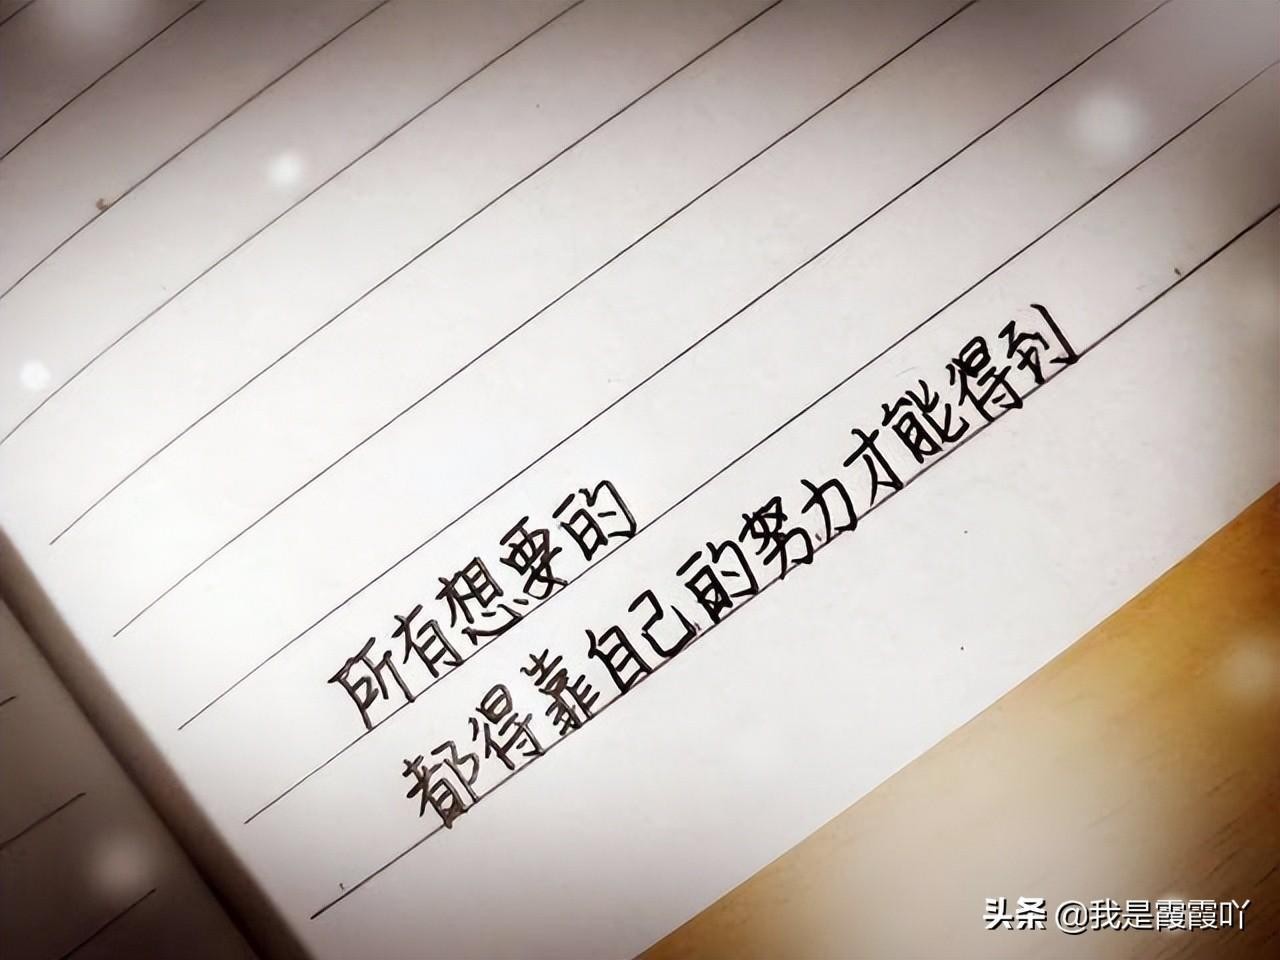 所有想要的
都得靠自己的努力才能得到
头条 @我是霞霞吖